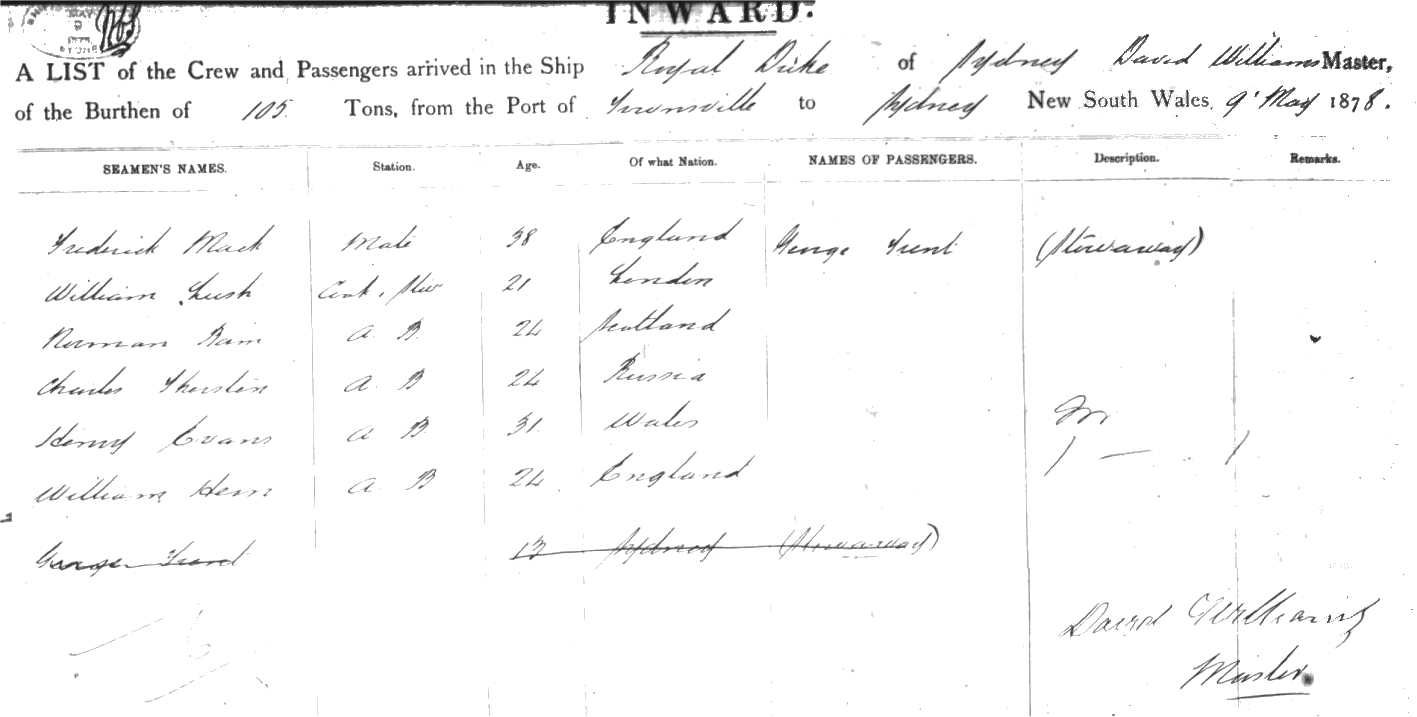 INWARD.
A LIST of the Crew and Passengers arrived in the Ship Royal Duke of Sydney David Williams Master,
of the Burthen of 105 Tons, from the Port of Townsville to Sydney New South Wales, 9' May 1878.
SEAMEN'S NAMES. Station. Age. Of what Nation. NAMES OF PASSENGERS. Description. Remarks.
Frederick Mack Mate 38 England George Trent (Stowaway)
William Lush Cook, Stew 21 London
Norman Bain A B 24 Scotland
Charles A B 24 Russia
Henry Evans A B 31 Wales
William Hern A B 24 England
George 13 Sydney (Stowaway)
David Williams
Master